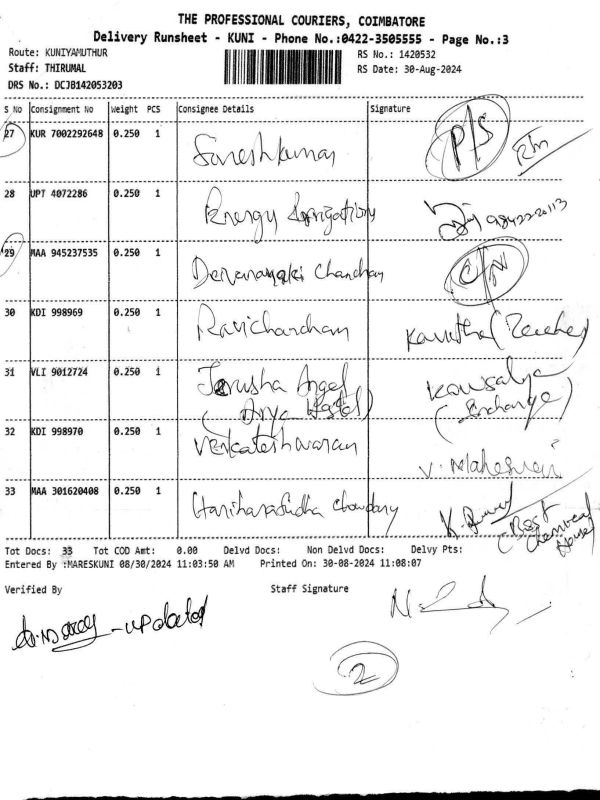 THE PROFESSIONAL COURIERS, COIMBATORE
Delivery Runsheet - KUNI - Phone No.:0422-3505555 - Page No.:3
Route: KUNIYAMUTHUR RS No.: 1420532
Staff: THIRUMAL RS Date: 30-Aug-2024
DRS No.: DCJB142053203
S No Consignment No Weight PCS Consignee Details Signature
27 KUR 7002292648 0.250 1 Sureshkumar P/S
28 UPT 4072286 0.250 1 Energy Irrigation 9842220113
29 MAA 945237535 0.250 1 Chandran C/N
30 KDI 998969 0.250 1 Ravichandran Kavitha (Teacher)
31 VLI 9012724 0.250 1 Jerusha Angel Kowsalya
(Arya Hostel) (Incharge)
32 KDI 998970 0.250 1 Venkateshwaran V. Maheswari
33 MAA 301620408 0.250 1 Hariharasudha Chowdary K. (Best
Chemical
House)
Tot Docs: 33 Tot COD Amt: 0.00 Delvd Docs: Non Delvd Docs: Delvy Pts:
Entered By :MARESKUNI 08/30/2024 11:03:50 AM Printed On: 30-08-2024 11:08:07
Verified By Staff Signature
- updated
2